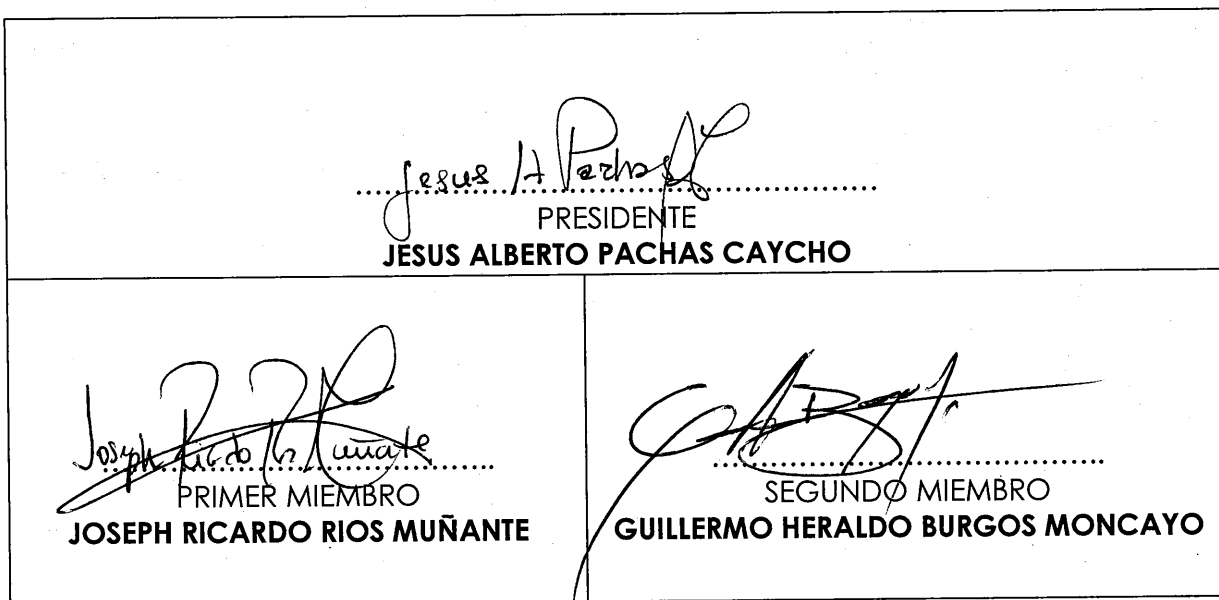 Jesus A Pachas
PRESIDENTE
JESUS ALBERTO PACHAS CAYCHO
Joseph Ricardo Rios Muñante
PRIMER MIEMBRO
JOSEPH RICARDO RIOS MUÑANTE
SEGUNDO MIEMBRO
GUILLERMO HERALDO BURGOS MONCAYO